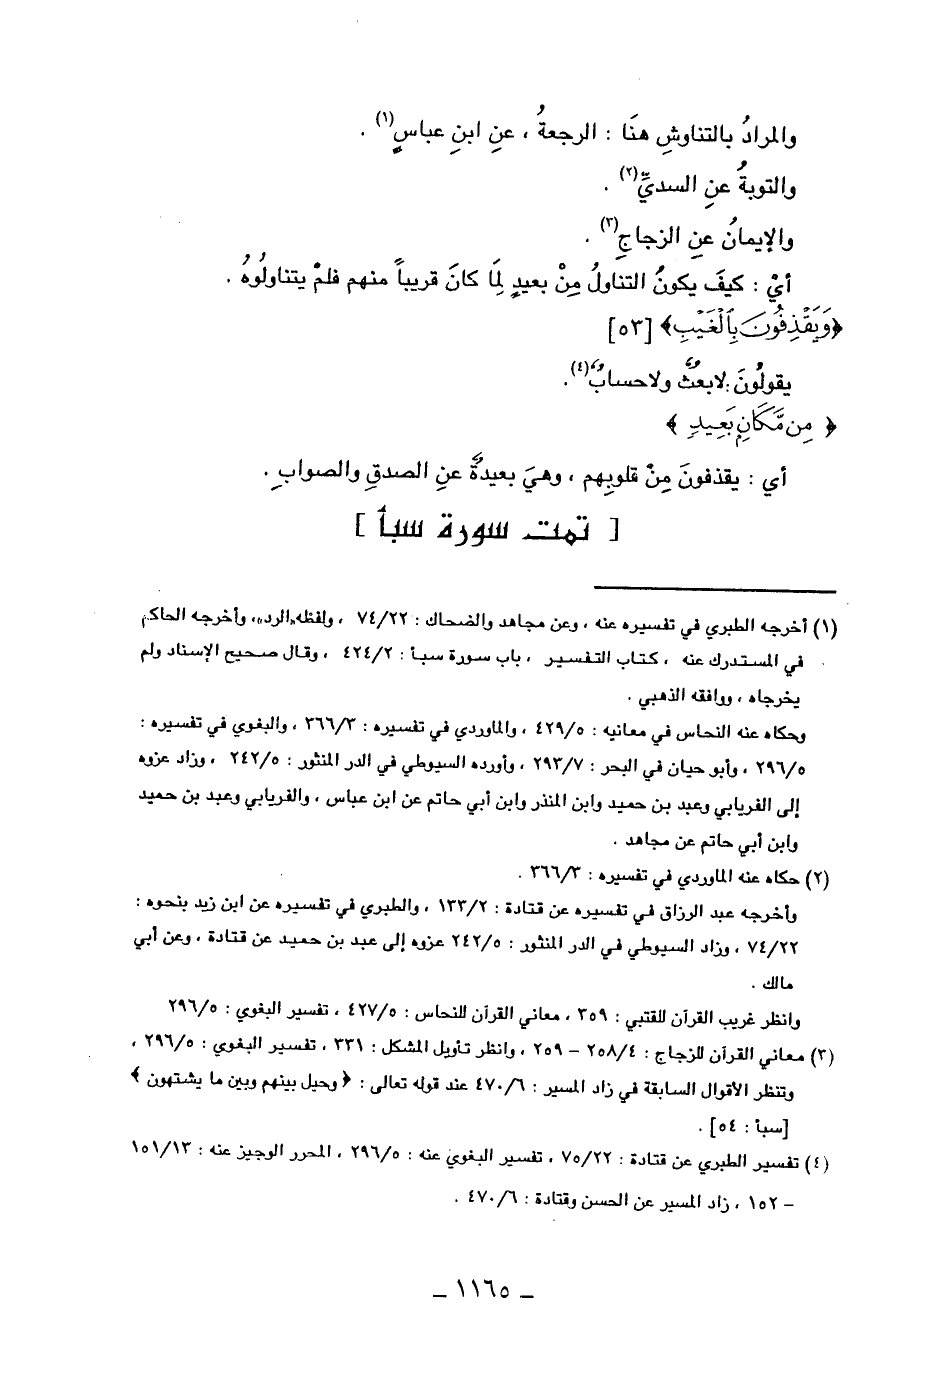 والمرادُ بالتناوشِ هنَا : الرجعةُ ، عنِ ابنِ عباسٍ(١) .
والتوبةُ عنِ السديِّ(٢) .
والإيمانُ عنِ الزجاجِ(٣) .
أيْ : كيفَ يكونُ التناولُ مِنْ بعيدٍ لِمَا كانَ قريباً منهم فلمْ يتناولُوهُ .
﴿وَيَقْذِفُونَ بِالْغَيْبِ﴾ [٥٣]
يقولُونَ لابعثٌ ولاحسابٌ(٤).
﴿ مِن مَّكَانٍ بَعِيدٍ ﴾
أي : يقذفونَ مِنْ قلوبِهم ، وهيَ بعيدةٌ عنِ الصدقِ والصوابِ .
[ تمت سورة سبأ ]
(١) أخرجه الطبري في تفسيره عنه ، وعن مجاهد والضحاك : ٧٤/٢٢ ، ولفظه «الرد»، وأخرجه الحاكم
في المستدرك عنه ، كتاب التفسير ، باب سورة سبأ : ٤٢٤/٢ ، وقال صحيح الإسناد ولم
يخرجاه ، ووافقه الذهبي .
وحكاه عنه النحاس في معانيه : ٤٢٩/٥ ، والماوردي في تفسيره : ٣٦٦/٣ ، والبغوي في تفسيره :
٢٩٦/٥ ، وأبو حيان في البحر : ٢٩٣/٧ ، وأورده السيوطي في الدر المنثور : ٢٤٢/٥ ، وزاد عزوه
إلى الفريابي وعبد بن حميد وابن المنذر وابن أبي حاتم عن ابن عباس ، والفريابي وعبد بن حميد
وابن أبي حاتم عن مجاهد .
(٢) حكاه عنه الماوردي في تفسيره : ٣٦٦/٣ .
وأخرجه عبد الرزاق في تفسيره عن قتادة : ١٣٣/٢ ، والطبري في تفسيره عن ابن زيد بنحوه :
٧٤/٢٢ ، وزاد السيوطي في الدر المنثور : ٢٤٢/٥ عزوه إلى عبد بن حميد عن قتادة ، وعن أبي
مالك .
وانظر غريب القرآن للقتبي : ٣٥٩ ، معاني القرآن للنحاس : ٤٢٧/٥ ، تفسير البغوي : ٢٩٦/٥
(٣) معاني القرآن للزجاج : ٢٥٨/٤ – ٢٥٩ ، وانظر تأويل المشكل : ٣٣١ ، تفسير البغوي : ٢٩٦/٥ ،
وتنظر الأقوال السابقة في زاد المسير : ٤٧٠/٦ عند قوله تعالى : ﴿ وحيل بينهم وبين ما يشتهون ﴾
[سبأ : ٥٤] .
(٤) تفسير الطبري عن قتادة : ٧٥/٢٢ ، تفسير البغوي عنه : ٢٩٦/٥ ، المحرر الوجيز عنه : ١٥١/١٣
– ١٥٢ ، زاد المسير عن الحسن وقتادة : ٤٧٠/٦ .
– ١١٦٥ –